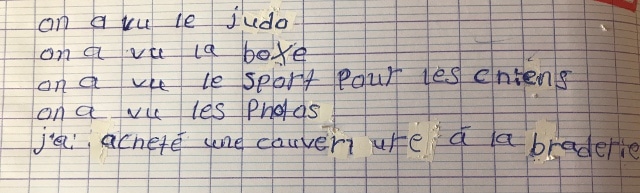 on a vu le judo
on a vu la boxe
on a vu le sport pour les chiens
on a vu les photos
j'ai acheté une couverture à la braderie